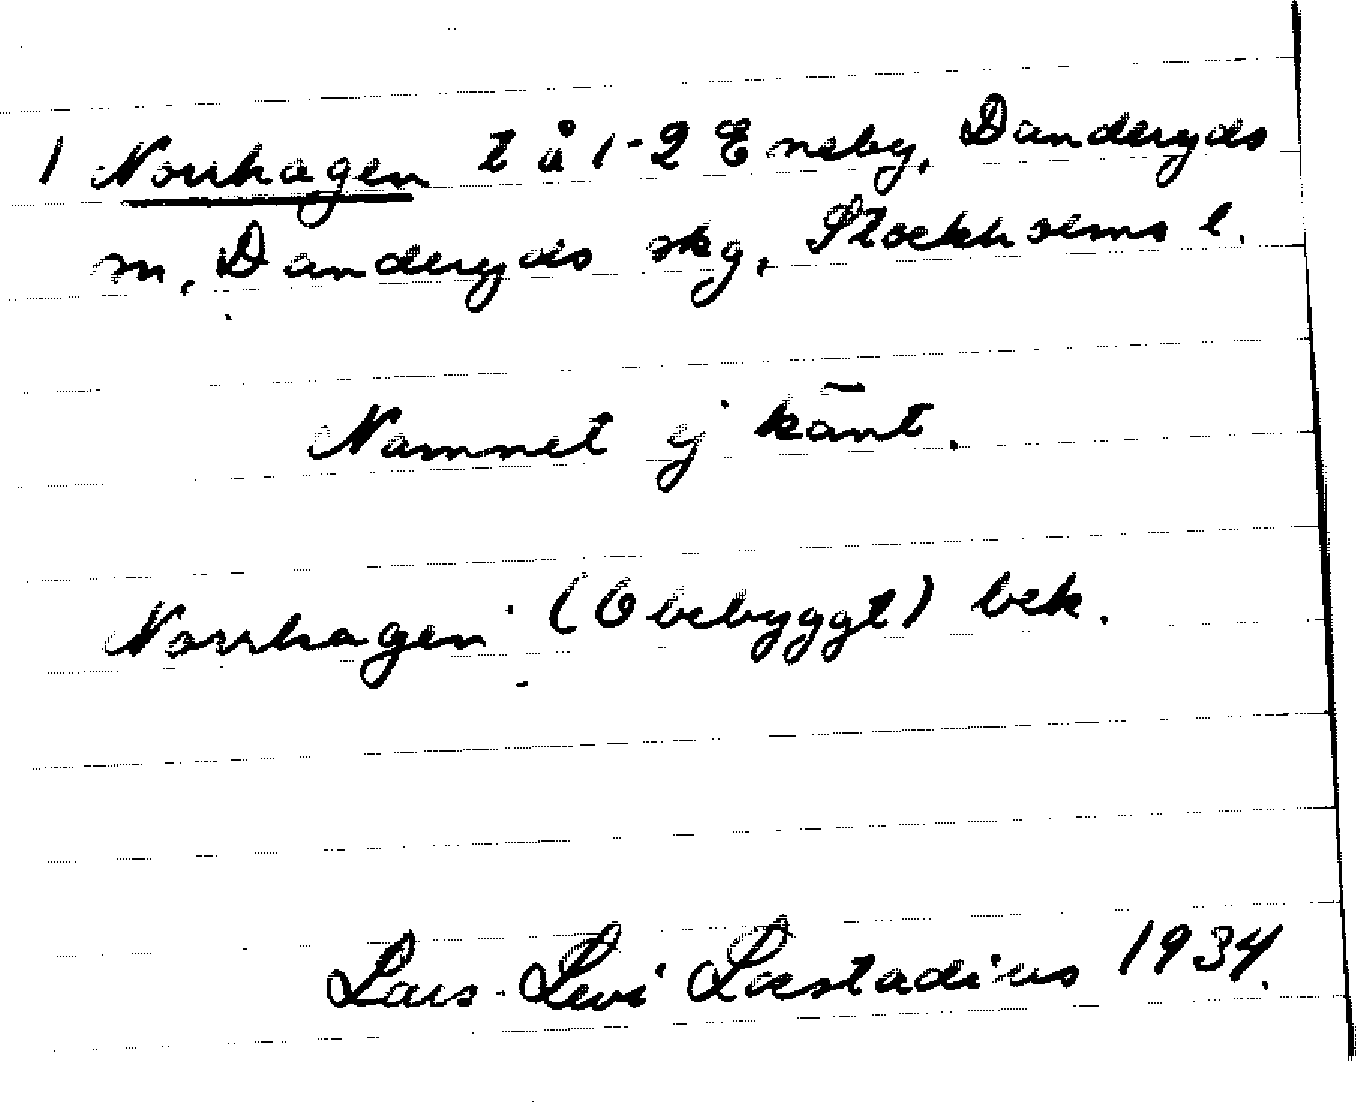 1 Norrhagen t å 1-2 Eneby, Danderyds
m, Danderyds skg, Stockholms l.
Namnet ej känt.
Norrhagen (Obebyggt) bek.
Lars-Levi Læstadius 1934.